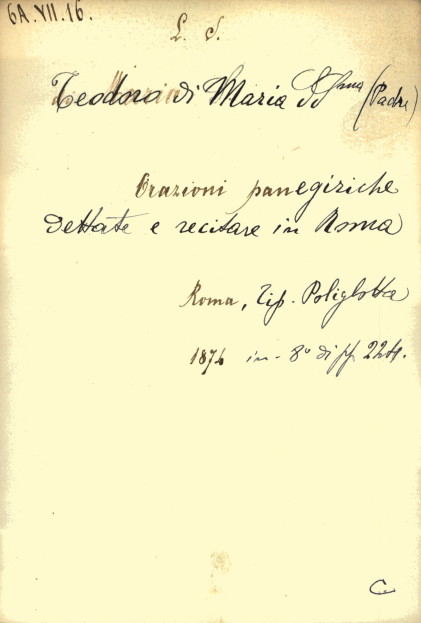 6A.VII.16.
L. S.
Teodoro di Maria SSma (Padre)
Orazioni panegiriche
dettate e recitare in Roma
Roma, Tip. Poliglotta
1876 in-8º di pp. 224.
C